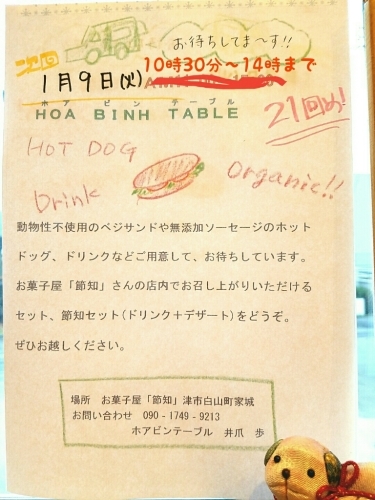 次回
お待ちしてま〜す!!
1月9日(火) 10時30分〜14時まで
ホア ビン テーブル
HOA BINH TABLE
21回め!
HOT DOG
Drink
Organic!!
動物性不使用のベジサンドや無添加ソーセージのホット
ドッグ、ドリンクなどご用意して、お待ちしています。
お菓子屋「節知」さんの店内でお召し上がりいただける
セット、節知セット(ドリンク＋デザート)をどうぞ。
ぜひお越しください。
場所 お菓子屋「節知」津市白山町家城
お問い合わせ 090-1749-9213
ホアビンテーブル 井爪 歩